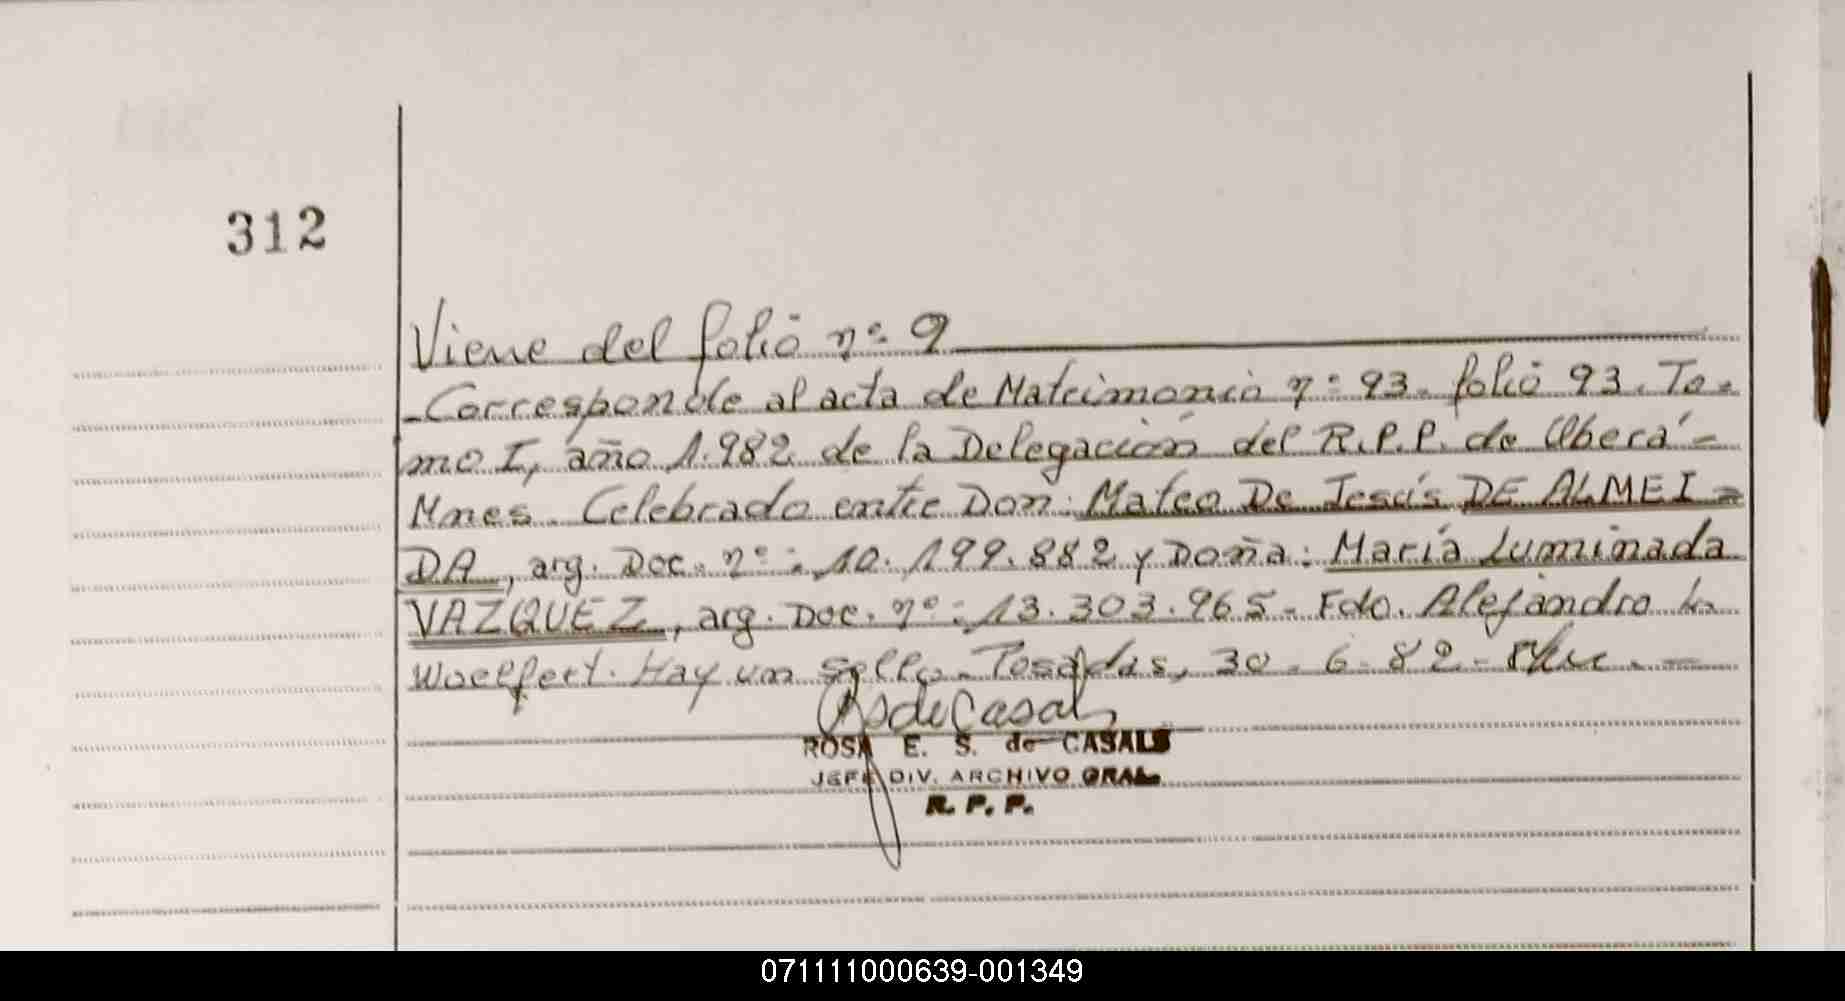 312
Viene del folio nº 9
-Corresponde al acta de Matrimonio nº 93. folio 93. To-
mo I, año 1.982 de la Delegación del R.P.P. de Oberá-
Mnes. Celebrado entre Don: Mateo De Jesús DE ALMEI-
DA, arg. Doc. nº: 10.199.882 y Doña: María Luminada
VAZQUEZ, arg. Doc. nº: 13.303.965- Fdo. Alejandro L.
Woelfert. Hay un sello. Posadas, 30-6-82-
RSdeCasals
ROSA E. S. de CASALS
JEFE DIV. ARCHIVO GRAL.
R. P. P.
071111000639-001349